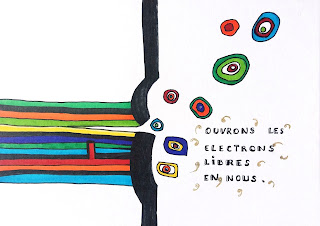 OUVRONS LES
ELECTRONS
LiBRES
EN NOUS.